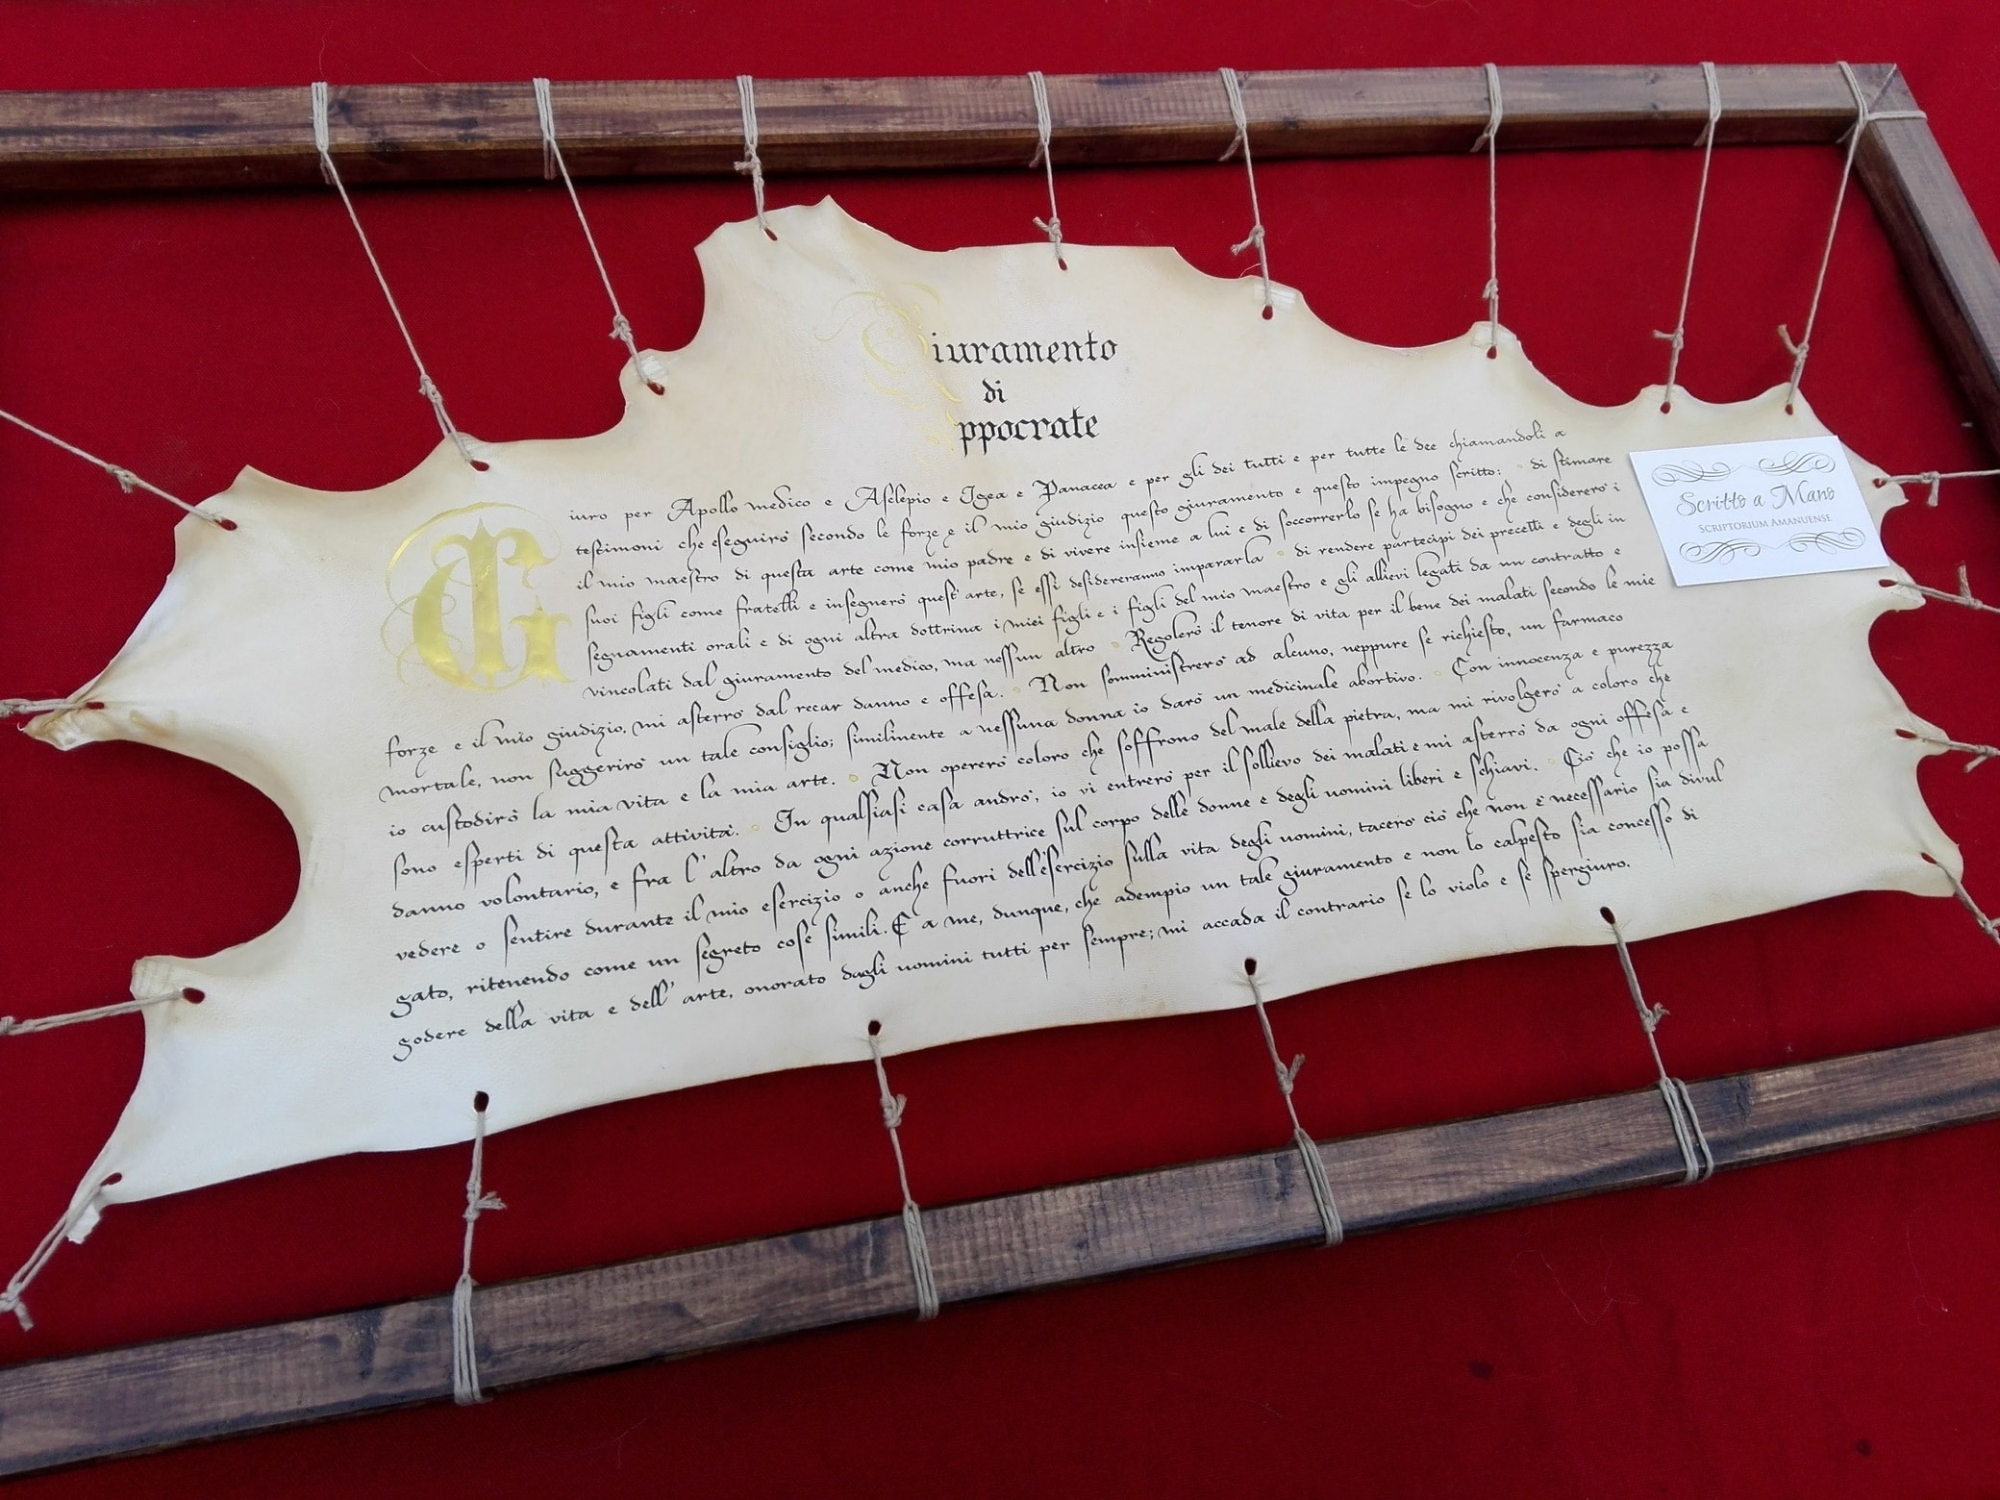 Giuramento
di
Ippocrate
Giuro per Apollo medico e Asclepio e Igea e Panacea e per gli dei tutti e per tutte le dee chiamandoli a
testimoni che eseguirò secondo le forze e il mio giudizio questo giuramento e questo impegno scritto: di stimare
il mio maestro di questa arte come mio padre e di vivere insieme a lui e di soccorrerlo se ha bisogno e che considererò i
suoi figli come fratelli e insegnerò quest'arte, se essi desidereranno impararla di rendere partecipi dei precetti e degli in
segnamenti orali e di ogni altra dottrina i miei figli e i figli del mio maestro e gli allievi legati da un contratto e
vincolati dal giuramento del medico, ma nessun altro Regolerò il tenore di vita per il bene dei malati secondo le mie
forze e il mio giudizio, mi asterrò dal recar danno e offesa. Non somministrerò ad alcuno, neppure se richiesto, un farmaco
mortale, non suggerirò un tale consiglio; similmente a nessuna donna io darò un medicinale abortivo. Con innocenza e purezza
io custodirò la mia vita e la mia arte. Non opererò coloro che soffrono del male della pietra, ma mi rivolgerò a coloro che
sono esperti di questa attività. In qualsiasi casa andrò, io vi entrerò per il sollievo dei malati e mi asterrò da ogni offesa e
danno volontario, e fra l'altro da ogni azione corruttrice sul corpo delle donne e degli uomini liberi e schiavi. Ciò che io possa
vedere o sentire durante il mio esercizio o anche fuori dell'esercizio sulla vita degli uomini, tacerò ciò che non è necessario sia divul
gato, ritenendo come un segreto cose simili. E a me, dunque, che adempio un tale giuramento e non lo calpesto sia concesso di
godere della vita e dell'arte, onorato dagli uomini tutti per sempre; mi accada il contrario se lo violo e se spergiuro.
Scritto a Mano
SCRIPTORIUM AMANUENSE